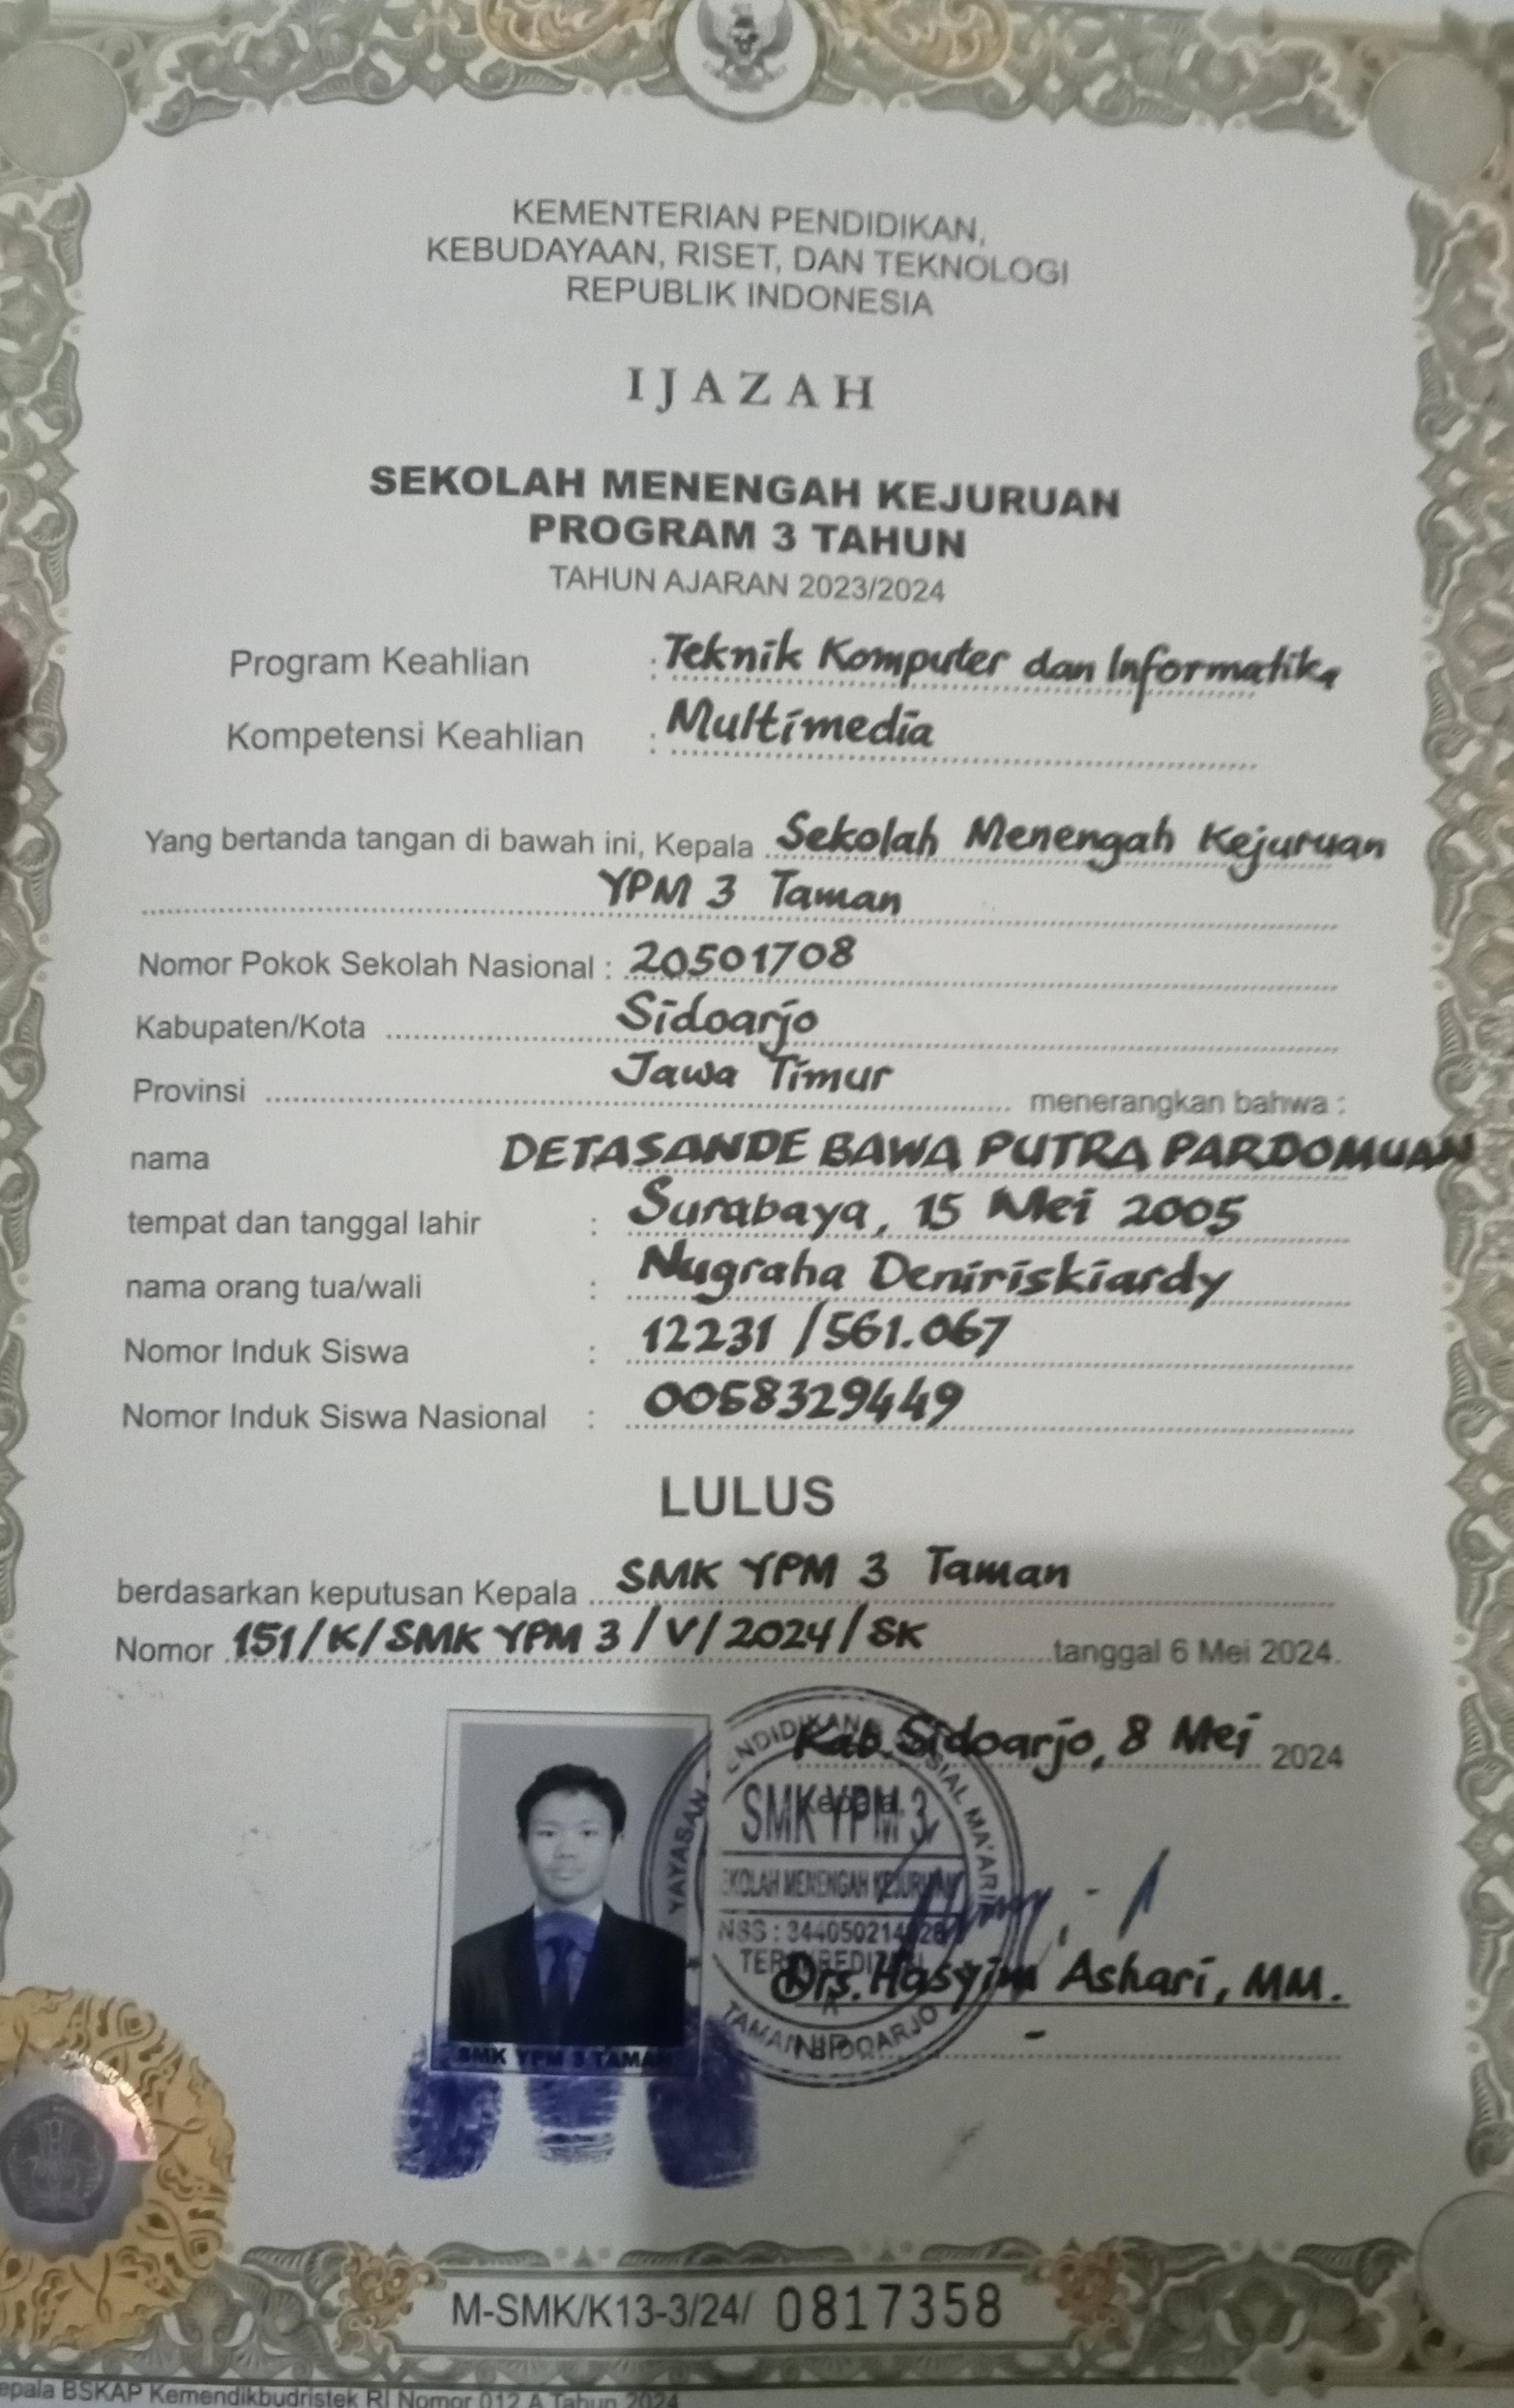 KEMENTERIAN PENDIDIKAN,
KEBUDAYAAN, RISET, DAN TEKNOLOGI
REPUBLIK INDONESIA
IJAZAH
SEKOLAH MENENGAH KEJURUAN
PROGRAM 3 TAHUN
TAHUN AJARAN 2023/2024
Program Keahlian : Teknik Komputer dan Informatika
Kompetensi Keahlian : Multimedia
Yang bertanda tangan di bawah ini, Kepala Sekolah Menengah Kejuruan
YPM 3 Taman
Nomor Pokok Sekolah Nasional : 20501708
Kabupaten/Kota Sidoarjo
Provinsi Jawa Timur menerangkan bahwa :
nama DETASANDE BAWA PUTRA PARDOMUAN
tempat dan tanggal lahir : Surabaya, 15 Mei 2005
nama orang tua/wali : Nugraha Deniriskiardy
Nomor Induk Siswa : 12231 / 561.067
Nomor Induk Siswa Nasional : 0058329449
LULUS
berdasarkan keputusan Kepala SMK YPM 3 Taman
Nomor 151/K/SMK YPM 3/V/2024/SK tanggal 6 Mei 2024.
Kab. Sidoarjo, 8 Mei 2024
Kepala,
YAYASAN PENDIDIKAN SOSIAL MA'ARIF
SMK YPM 3
SEKOLAH MENENGAH KEJURUAN
NSS :
TAMAN SIDOARJO
Drs. Hasyim Ashari, MM.
NIP. -
SMK YPM 3 TAMAN
M-SMK/K13-3/24/ 0817358
epala BSKAP Kemendikbudristek RI Nomor 012 A Tahun 2024